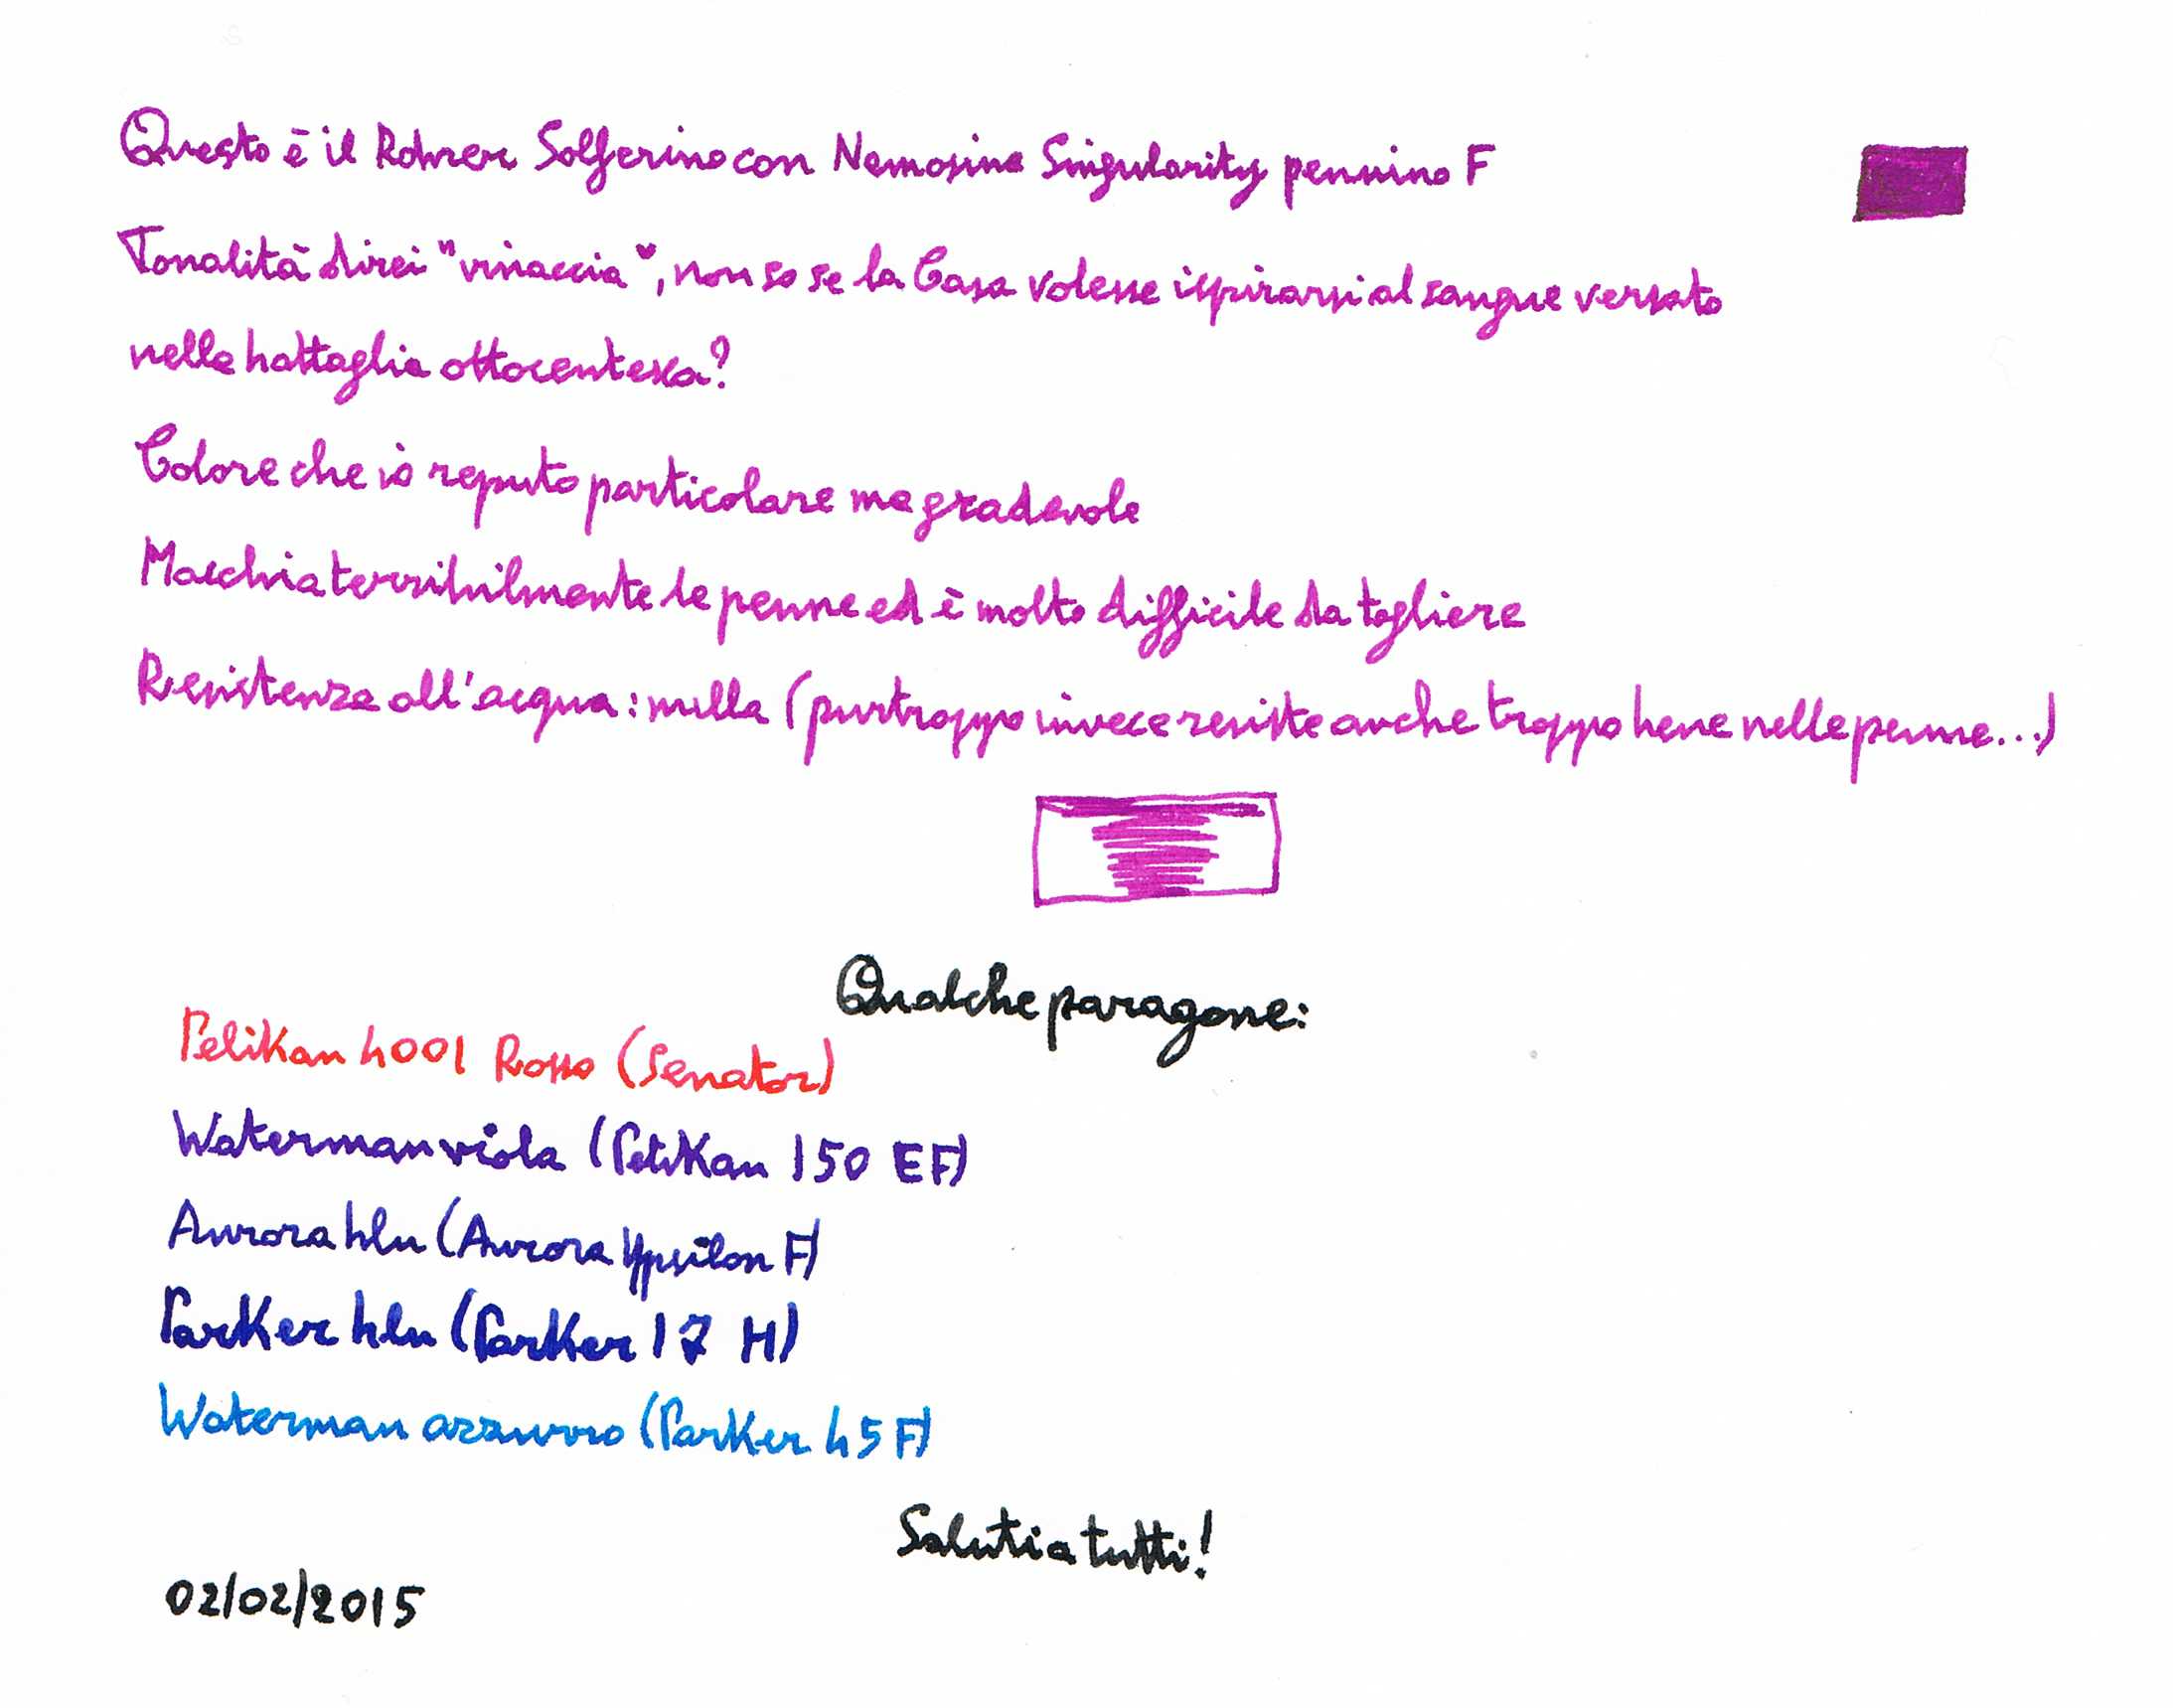 Questo è il Rohrer Solferino con Nemosine Singularity pennino F
Tonalità direi "vinaccia", non so se la Casa volesse ispirarsi al sangue versato
nella battaglia ottocentesca?
Colore che io reputo particolare ma gradevole
Macchia terribilmente le penne ed è molto difficile da togliere
Resistenza all'acqua: nulla (purtroppo invece resiste anche troppo bene nelle penne...)
Qualche paragone:
Pelikan 4001 Rosso (Senator)
Waterman viola (Pelikan 150 EF)
Aurora blu (Aurora Ypsilon F)
Parker blu (Parker 17 M)
Waterman azzurro (Parker 45 F)
Saluti a tutti!
02/02/2015